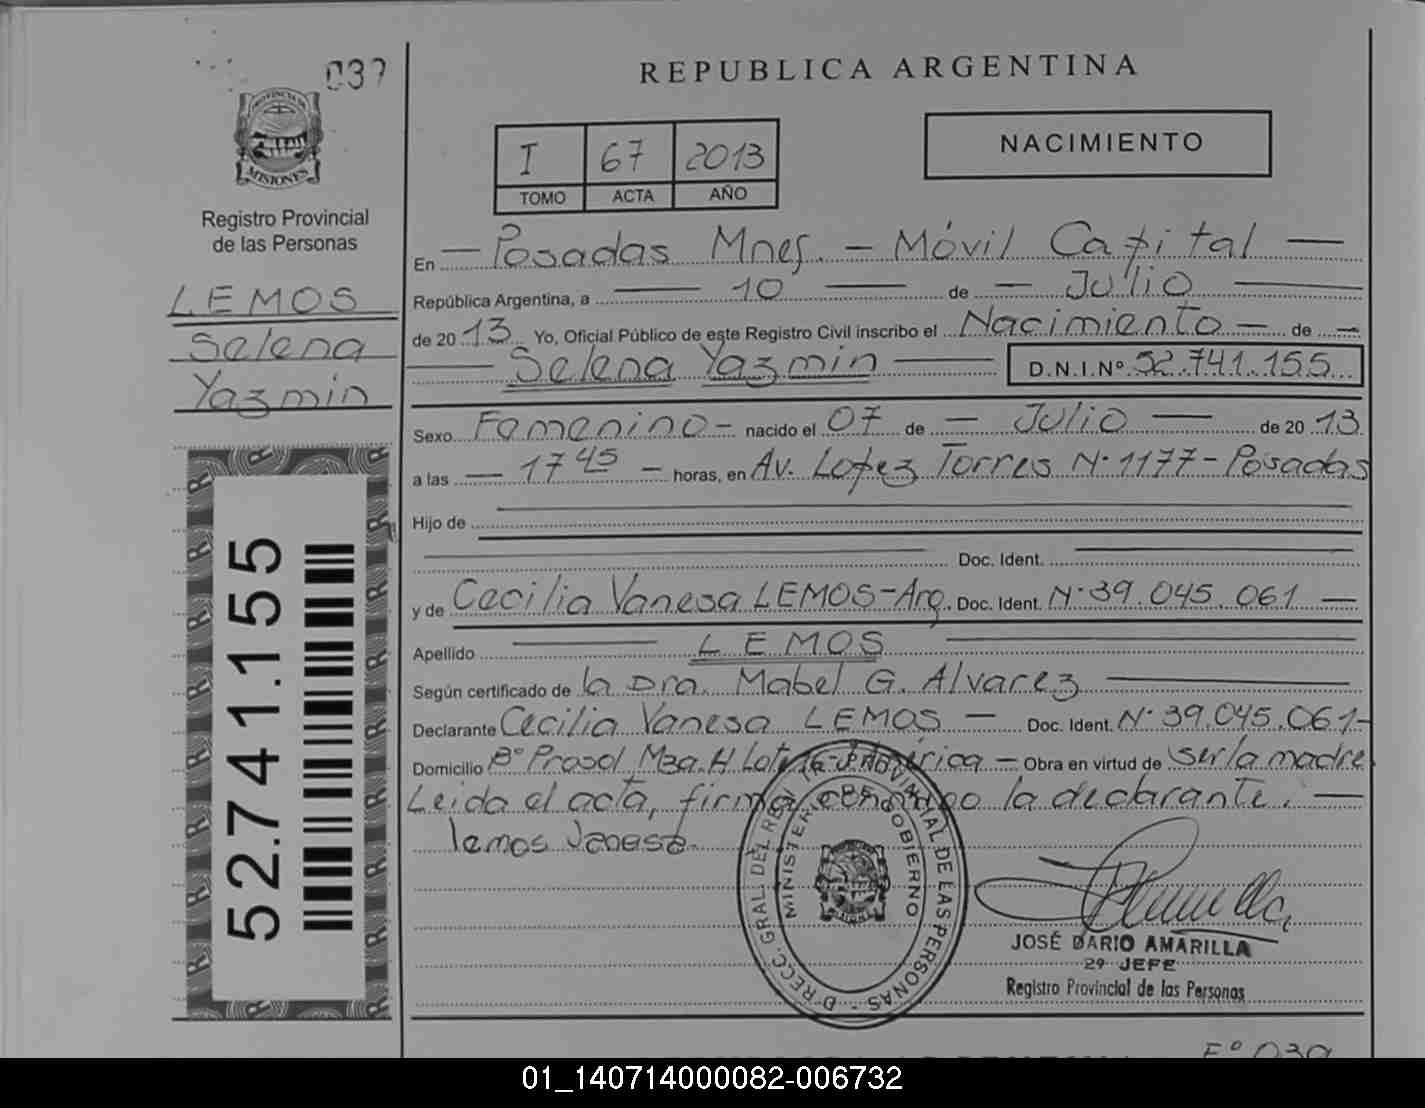 039
PROVINCIA DE
MISIONES
Registro Provincial
de las Personas
LEMOS
Selena
Yazmin
52.741.155
REPUBLICA ARGENTINA
I 67 2013
TOMO ACTA AÑO
NACIMIENTO
En — Posadas Mnes. — Móvil Capital —
República Argentina, a — 10 — de — Julio —
de 2013 Yo, Oficial Público de este Registro Civil inscribo el Nacimiento — de —
— Selena Yazmin — D.N.I.Nº 52.741.155
Sexo Femenino — nacido el 07 de — Julio — de 2013
a las — 17 45 — horas, en Av. Lopez Torres N° 1177 - Posadas
Hijo de
Doc. Ident.
y de Cecilia Vanesa LEMOS - Arg. Doc. Ident. N° 39.045.061 —
Apellido — LEMOS —
Según certificado de la Dra. Mabel G. Alvarez —
Declarante Cecilia Vanesa LEMOS — Doc. Ident. N° 39.045.061 -
Domicilio B° Prosol Mza. H Lote — Obra en virtud de ser la madre
Leida el acta, firma la declarante. —
lemos Vanesa
DIRECC. GRAL. DEL REG. PROVINCIAL DE LAS PERSONAS -
MINISTERIO DE GOBIERNO
JOSÉ DARIO AMARILLA
2º JEFE
Registro Provincial de las Personas
Fº 039
01_140714000082-006732